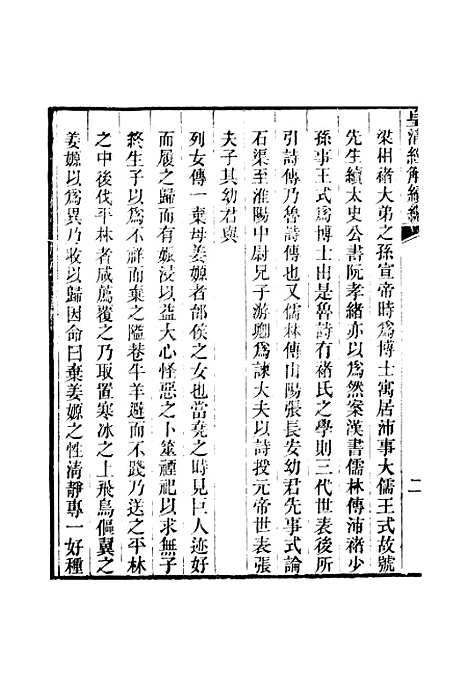 皇清經解續編
二
梁相褚大弟之孫宣帝時爲博士寓居沛事大儒王式故號
先生續太史公書阮孝緒亦以爲然案漢書儒林傳沛褚少
孫事王式爲博士由是魯詩有褚氏之學則三代世表後所
引詩傳乃魯詩傳也又儒林傳山陽張長安幼君先事式論
石渠至淮陽中尉兄子游卿爲諫大夫以詩授元帝世表張
夫子其幼君與
列女傳一棄母姜嫄者邰侯之女也當堯之時見巨人迹好
而履之歸而有娠浸以益大心怪惡之卜筮禋祀以求無子
終生子以爲不祥而棄之隘巷牛羊避而不踐乃送之平林
之中後伐平林者咸薦覆之乃取置寒冰之上飛鳥傴翼之
姜嫄以爲異乃收以歸因命曰棄姜嫄之性清靜專一好種